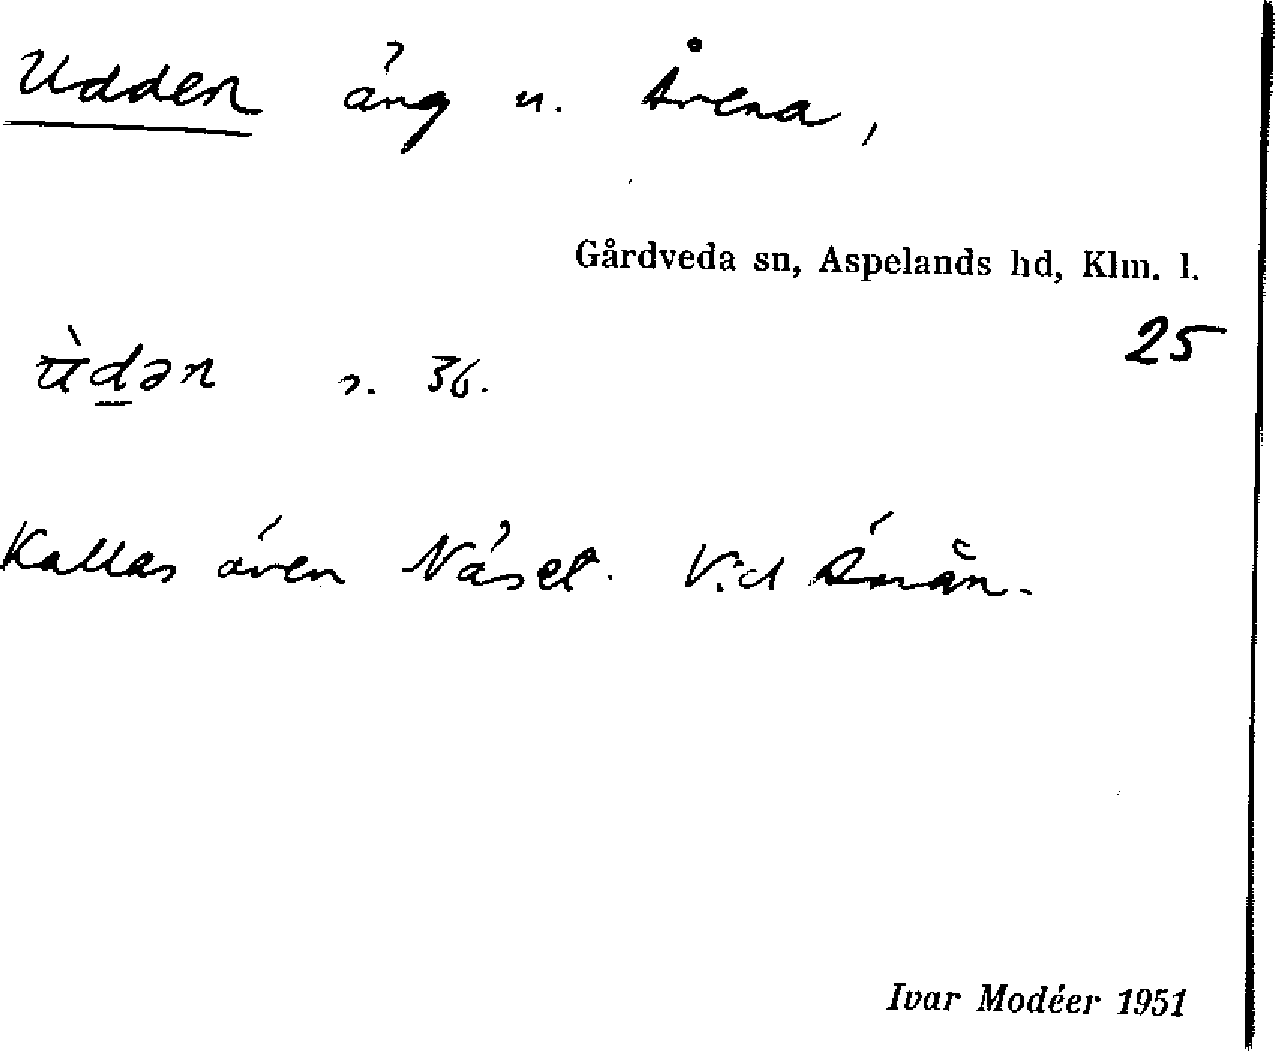 Udden äng u. Årena,
Gårdveda sn, Aspelands hd, Klm. l.
25
ùdən s. 36.
Kallas även Näset. Vid
Ivar Modéer 1951